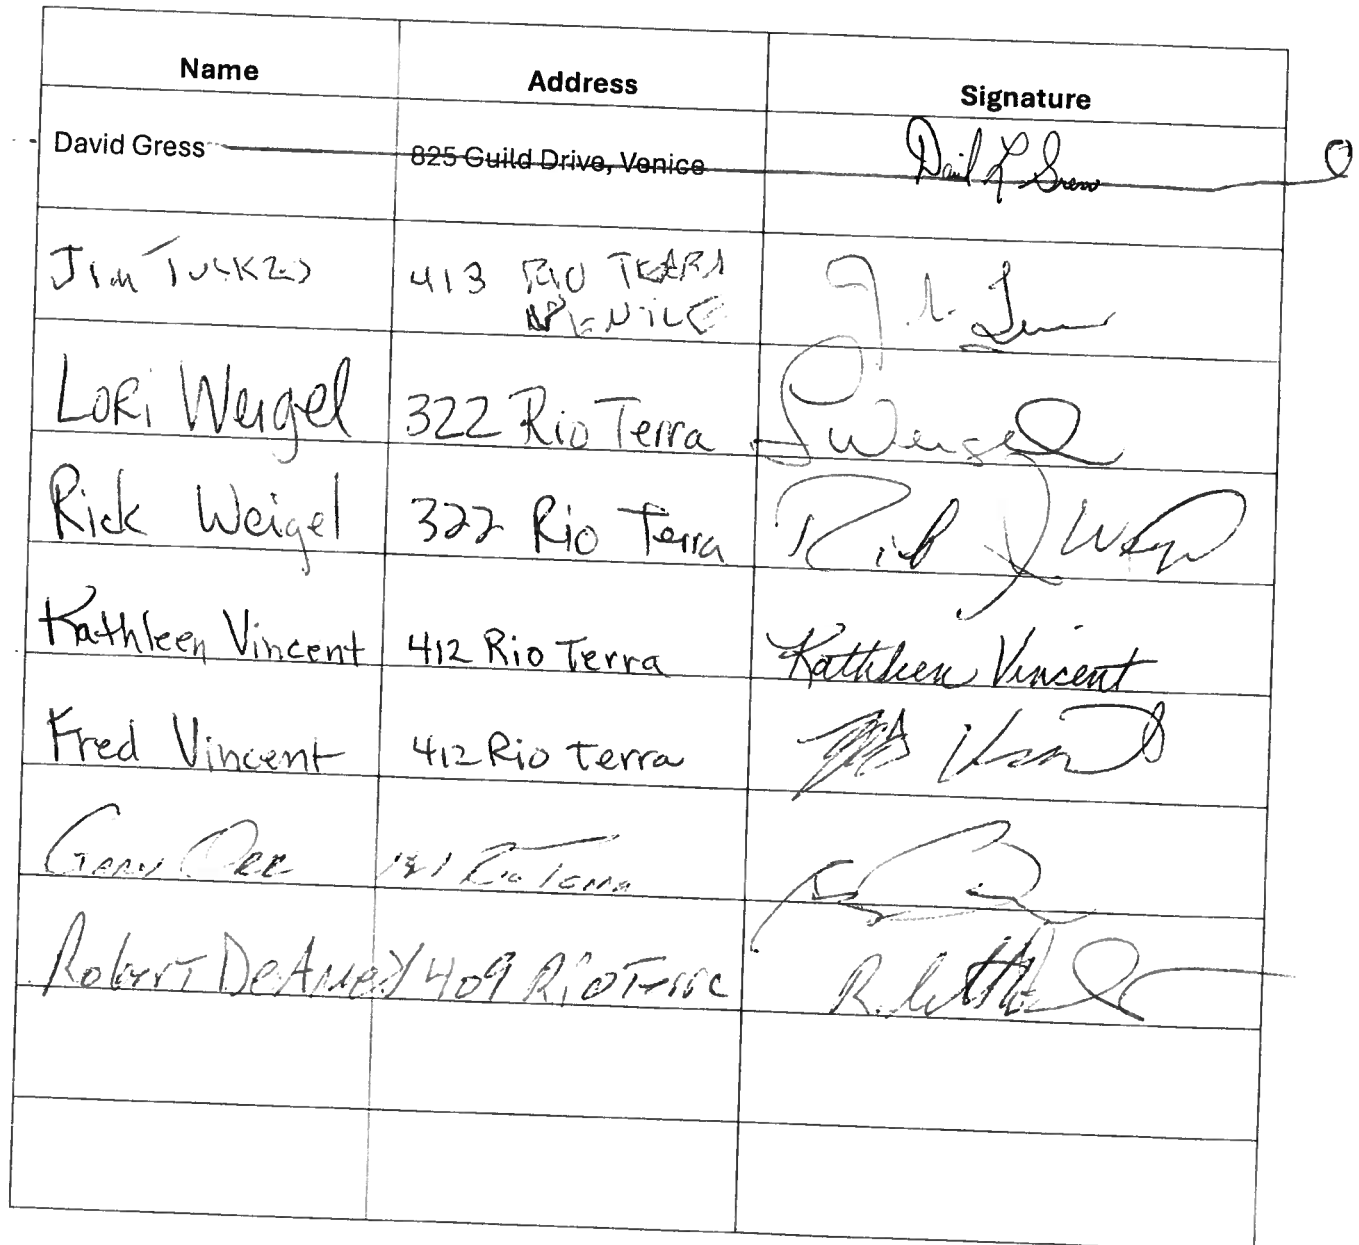 Name Address Signature
David Gress 825 Guild Drive, Venice David L Gress
Jim 413 RIO TERRA
VENICE
LORi Weigel 322 Rio Terra L Weigel
Rick Weigel 322 Rio Terra Rick J Weigel
Kathleen Vincent 412 Rio Terra Kathleen Vincent
Fred Vincent 412 Rio Terra Vincent
Gary Orr Rio Terra
Robert 409 Rio Terra